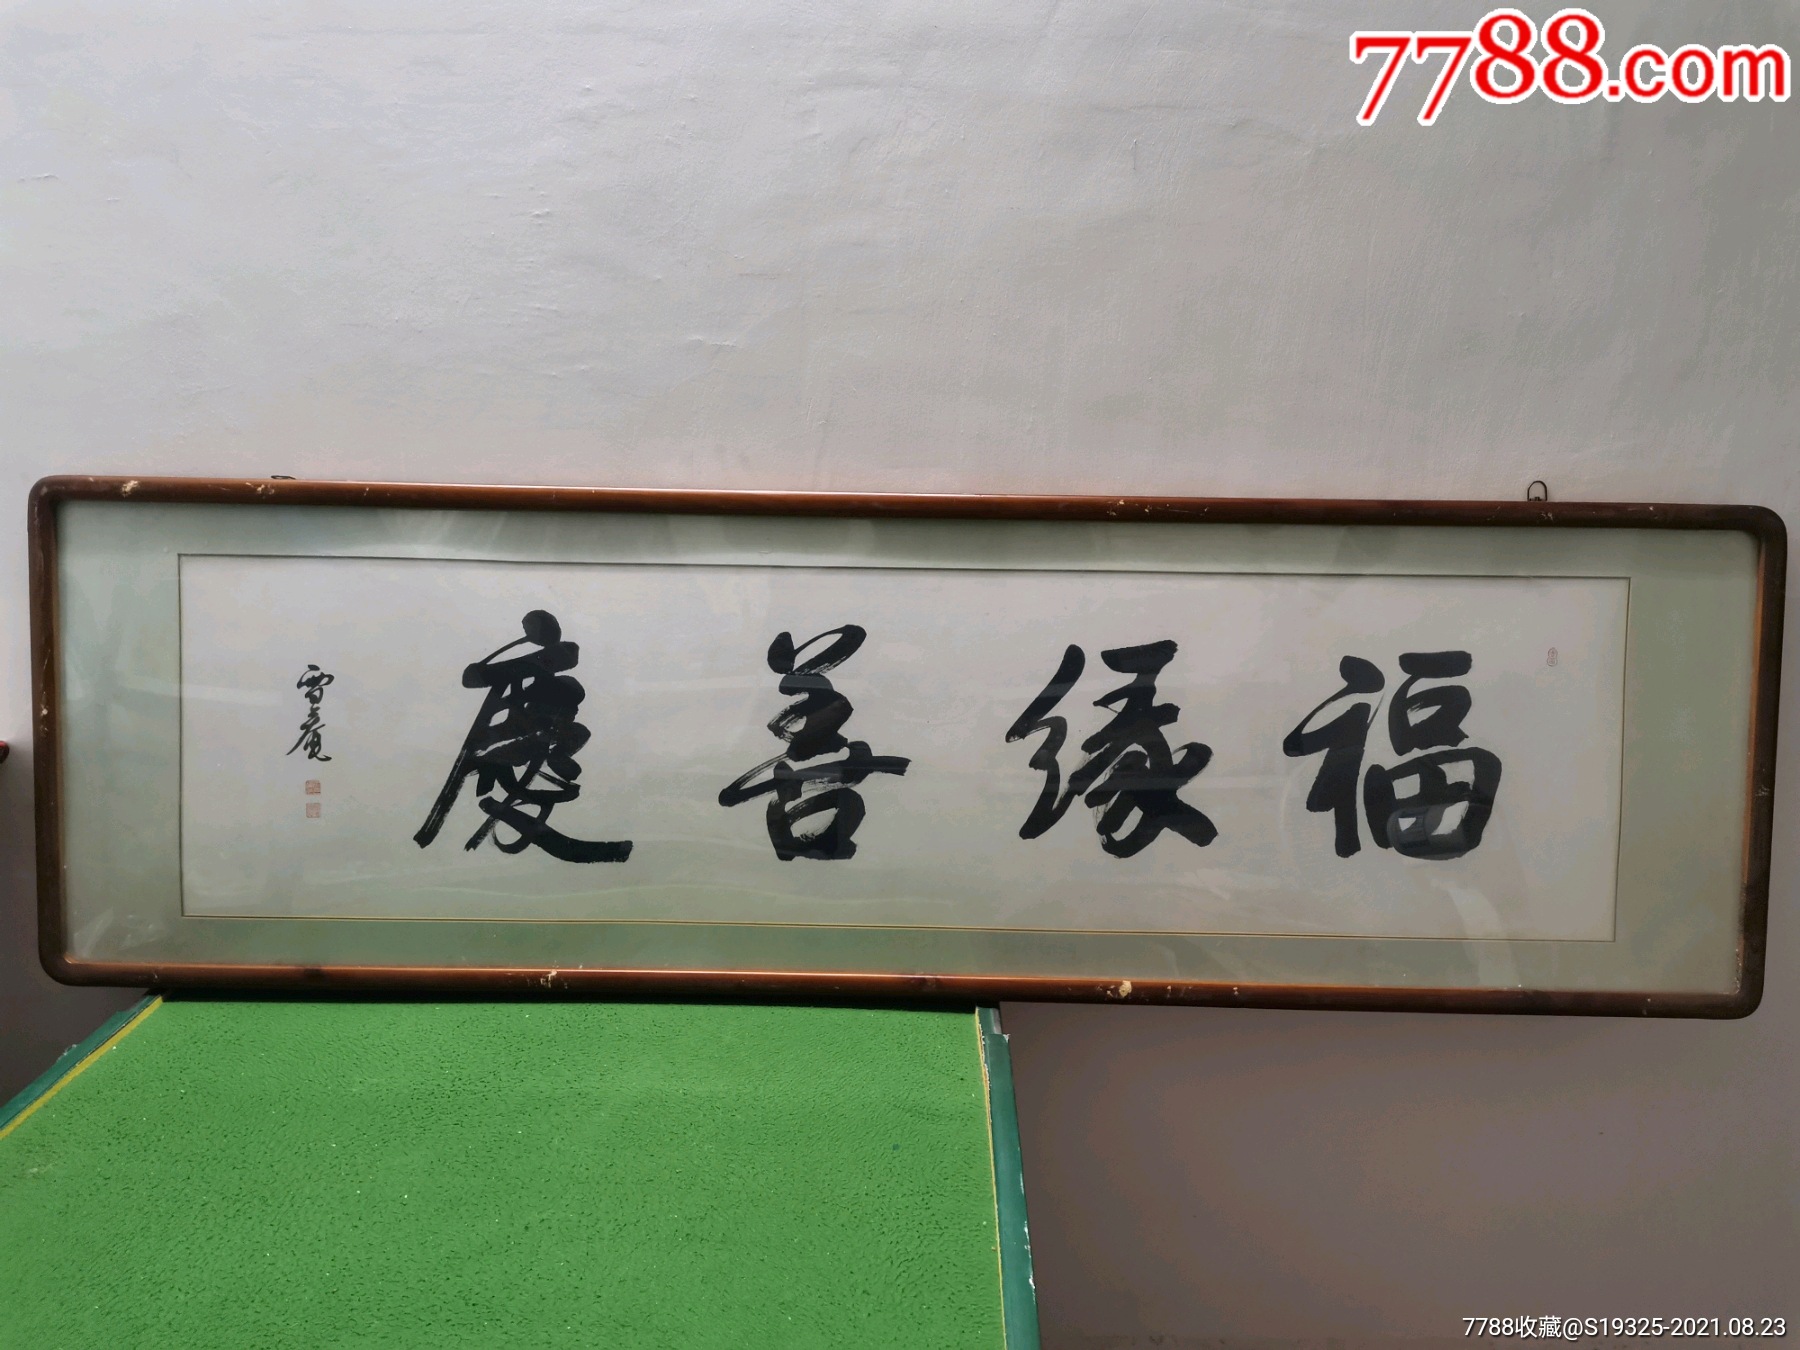 7788.com
福緣善慶
雪庵
7788收藏@S19325-2021.08.23